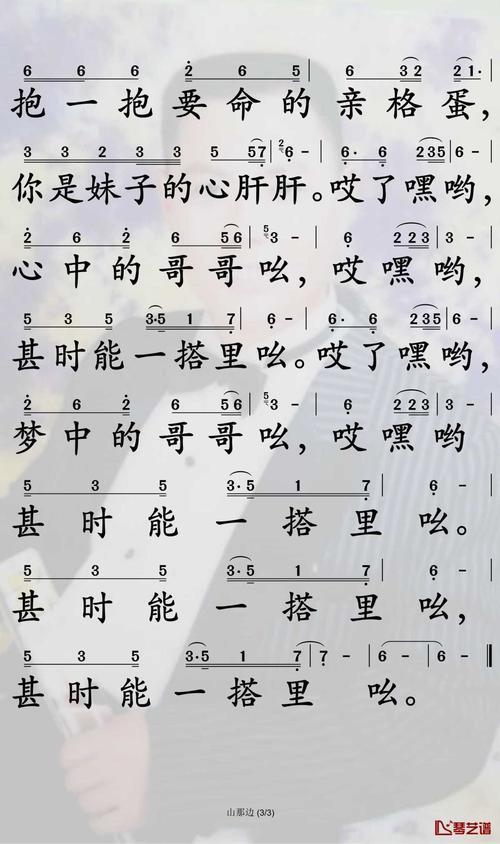 6 6 6 2 6 5 | 6 3 2 2 1· |
抱一抱要命的亲格蛋，
3 3 2 3 3 5 5 7 | 6 - | 6· 6 2 3 5 | 6 - |
你是妹子的心肝肝。哎了嘿哟，
2 6 2 6 5 6 | 3 - | 6 2 2 3 | 3 - |
心中的哥哥吆，哎嘿哟，
5 3 5 3·5 1 7 | 6 - | 6· 6 2 3 5 | 6 - |
甚时能一搭里吆。哎了嘿哟，
2 6 2 6 5 6 | 3 - | 6 2 2 3 | 3 - |
梦中的哥哥吆，哎嘿哟
5 3 5 3·5 1 7 | 6 - |
甚时能一搭里吆。
5 3 5 3·5 1 7 | 6 - |
甚时能一搭里吆，
5 3 5 3·5 1 7 | 7 - | 6 - | 6 - ‖
甚时能一搭里 吆。
山那边 (3/3)
琴艺谱